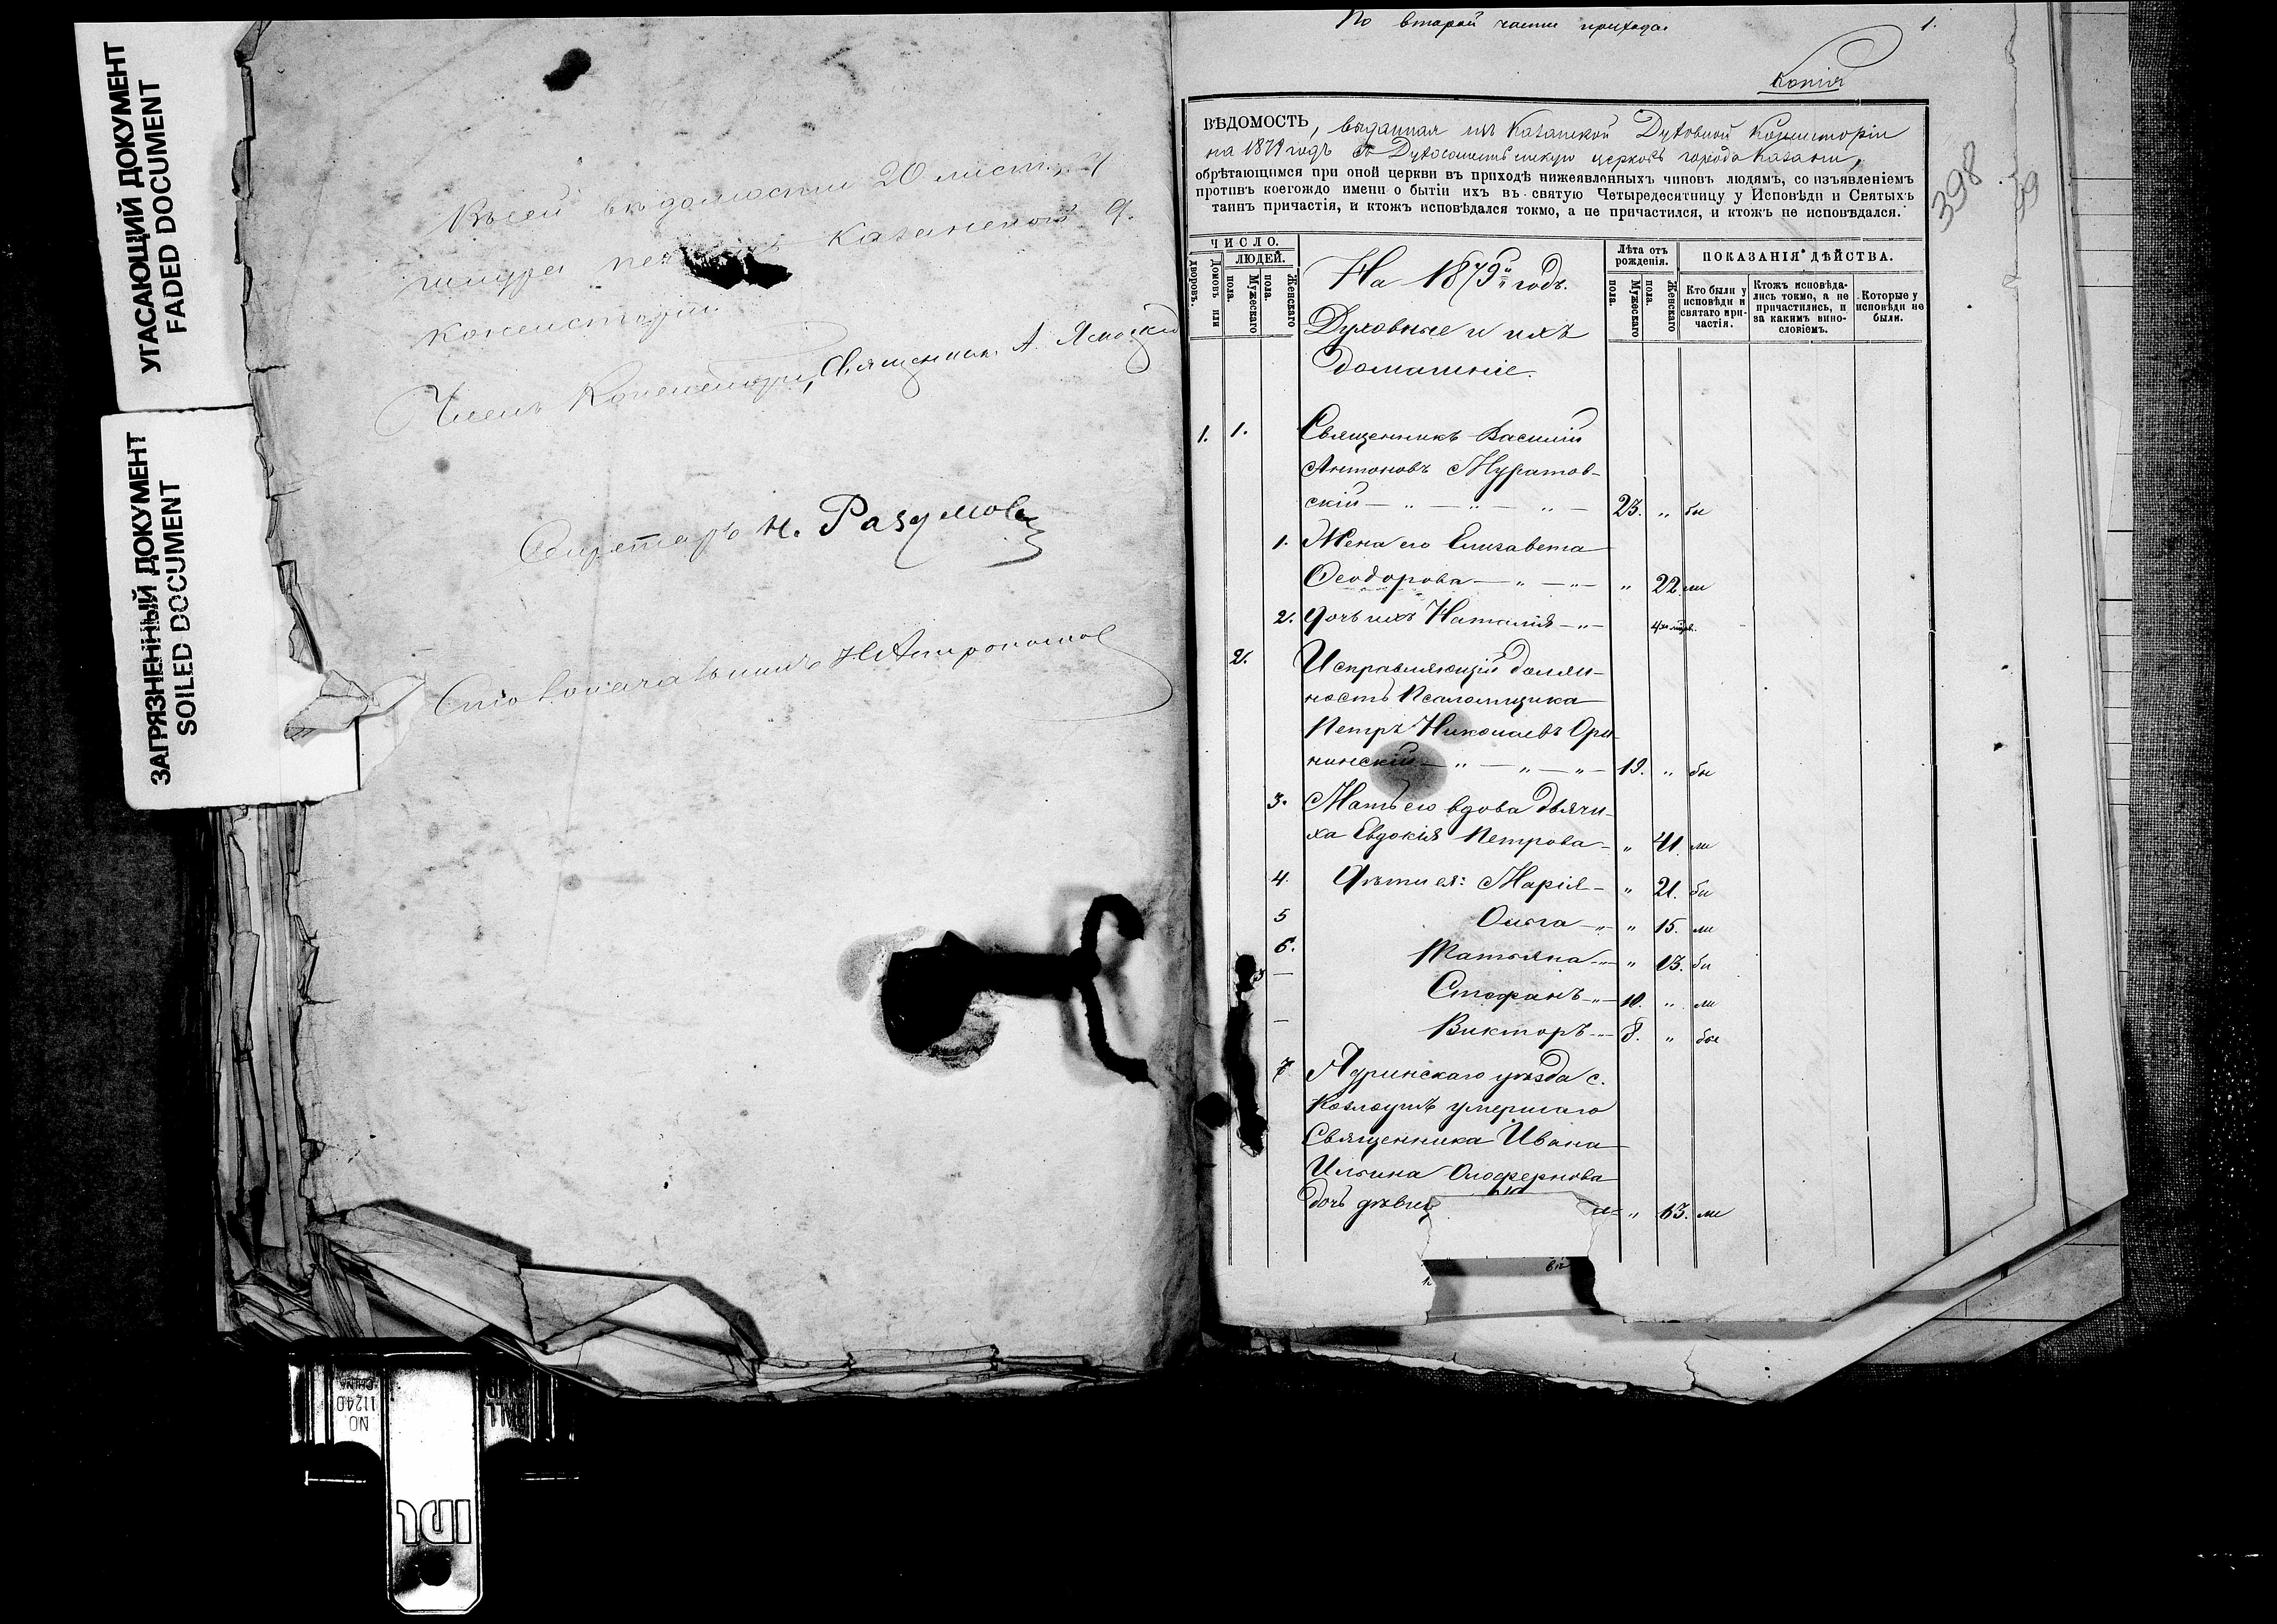 УГАСАЮЩИЙ ДОКУМЕНТ
FADED DOCUMENT
ЗАГРЯЗНЕННЫЙ ДОКУМЕНТ
SOILED DOCUMENT
Въ сей вѣдомости 20 листовъ, у
шнура печать Казанской Д.
Консисторіи
Членъ Консисторіи, Священникъ А.
Секретарь Н. Разумовъ
Столоначальникъ
По второй части прихода.
1.
Копія
398
39
ВѢДОМОСТЬ, выданная изъ Казанской Духовной Консисторіи
на 1879 годъ въ Духосошественскую церковь города Казани,
обрѣтающимся при оной церкви въ приходѣ нижеявленныхъ чиновъ людямъ, со изъявленіемъ
противъ коегождо имени о бытіи ихъ въ святую Четыредесятницу у Исповѣди и Святыхъ
таинъ причастія, и ктожъ исповѣдался токмо, а не причастился, и ктожъ не исповѣдался.
ЧИСЛО.
ЛЮДЕЙ.
Домовъ или дворовъ.
Мужескаго пола.
Женскаго пола.
На 1879й годъ.
Лѣта отъ рожденія.
Мужескаго пола.
Женскаго пола.
ПОКАЗАНІЯ ДѢЙСТВА.
Кто были у исповѣди и святаго причастія.
Ктожъ исповѣдались токмо, а не причастились, и за какимъ винословіемъ.
Которые у исповѣди не были.
Духовные и ихъ
домашніе.
1. 1. Священникъ Василій
Антоновъ Муратов-
скій — „ — „ — „ — 23. „ бы
1. Жена его Елизавета
Ѳеодорова — „ — „ — „ 22. ли
2. Дочь ихъ Наталія — „ —
2. Исправляющій долж-
ность Псаломщика
Петръ Николаевъ Ори-
нинскій — „ — „ — „ — 19. „ бы
3. Мать его вдова дьячи-
ха Евдокія Петрова — „ 41. ли
4. Дѣти ея: Марія — „ 21. бы
5 Ольга — „ — „ 15. ли
6. Татьяна — „ — „ 13. бы
3 — Стефанъ — „ — 10. „ ли
— Викторъ — „ — 8. „ бы
7 Ядринскаго уѣзда с.
умершаго
Священника Ивана
Ильина Олофернова
дочь дѣвиц „ 63. ли
NO
11240
IDC